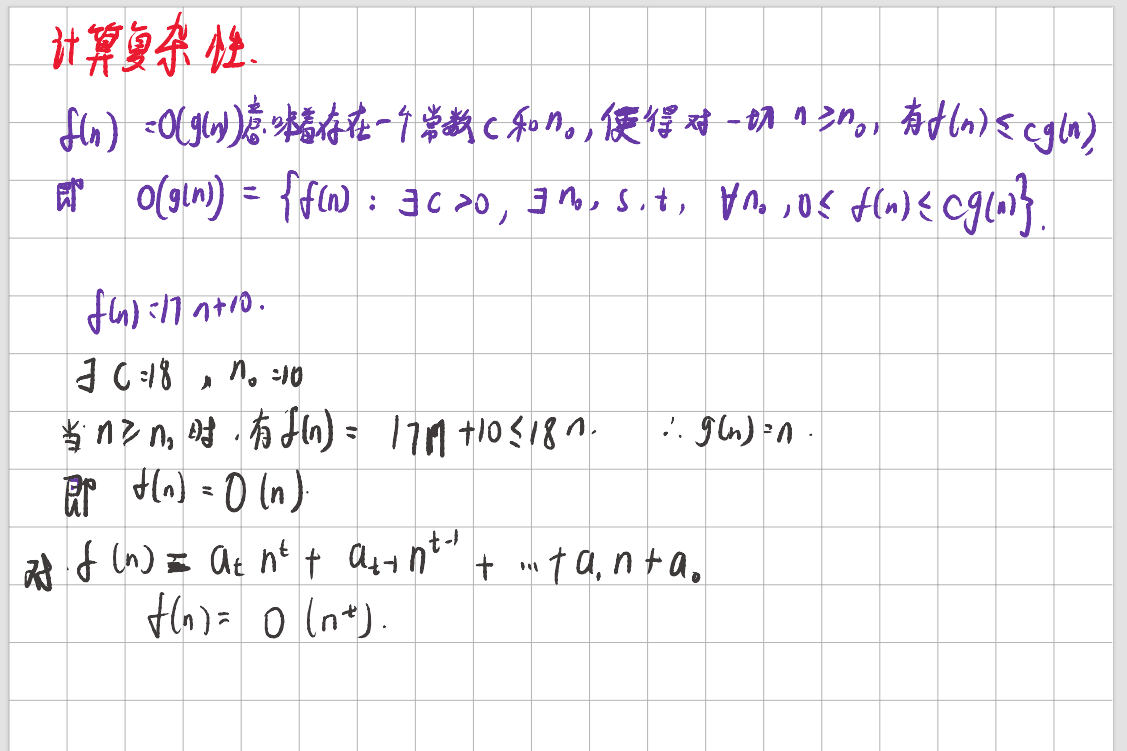 计算复杂性.
f(n) = O(g(n))意味着存在一个常数 c 和 n₀, 使得对一切 n ≥ n₀, 有 f(n) ≤ cg(n),
即 O(g(n)) = {f(n) : ∃ c > 0, ∃ n₀, s.t, ∀n₀, 0 ≤ f(n) ≤ cg(n)}.
f(n) = 17n+10.
∃ C=18, n₀=10
当 n ≥ n₀ 时.有 f(n) = 17n+10 ≤ 18n. ∴ g(n)=n.
即 f(n) = O(n).
对 f(n) = aₜnᵗ + aₜ₋₁nᵗ⁻¹ + … + a₁n + a₀
f(n) = O(nᵗ).